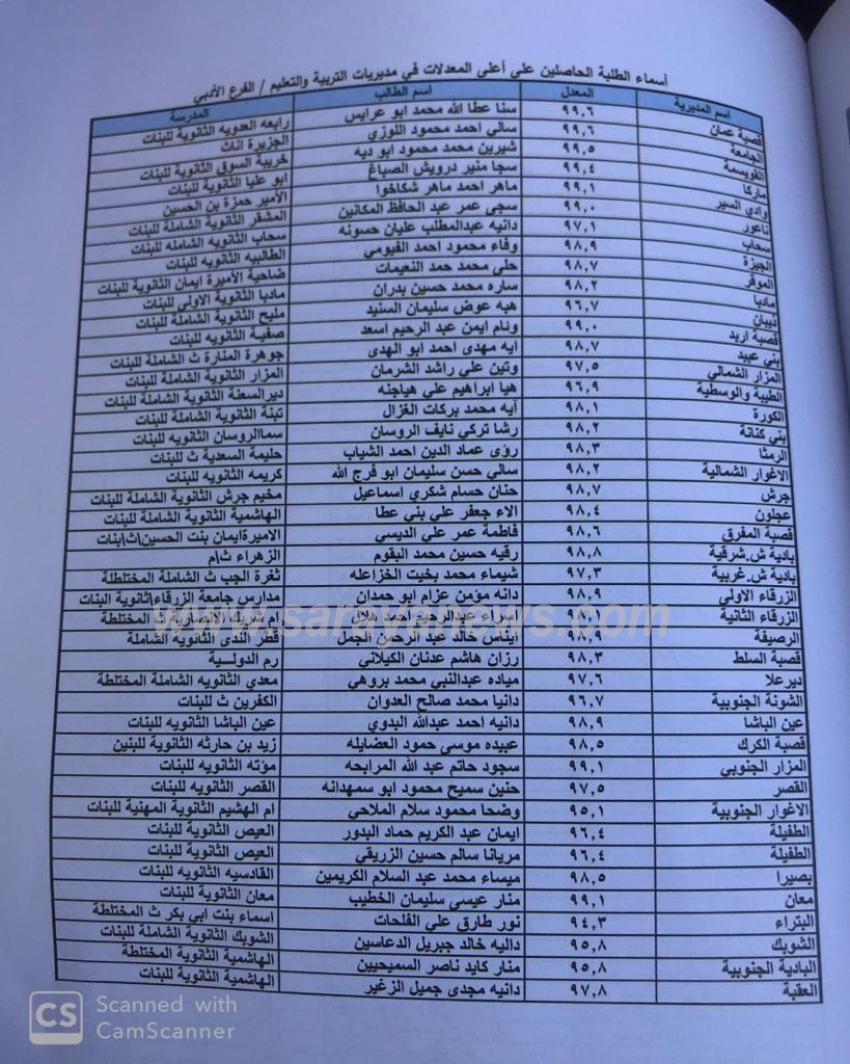 أسماء الطلبة الحاصلين على أعلى المعدلات في مديريات التربية والتعليم / الفرع الأدبي
اسم المديرية المعدل اسم الطالب المدرسة
قصبة عمان ٩٩,٦ سنا عطا الله محمد ابو عرايس رابعه العدويه الثانوية للبنات
الجامعة ٩٩,٦ سالي احمد محمود اللوزي الجزيرة اناث
القويسمة ٩٩,٥ شيرين محمد محمود ابو ديه خريبة السوق الثانوية للبنات
ماركا ٩٩,٤ سجا منير درويش الصباغ ابو عليا الثانوية للبنات
وادي السير ٩٩,١ ماهر احمد ماهر شكاخوا الأمير حمزة بن الحسين
ناعور ٩٩,٠ سجى عمر عبد الحافظ المكانين المشقر الثانوية الشاملة للبنات
سحاب ٩٧,١ دانيه عبدالمطلب عليان حسونه سحاب الثانويه الشامله للبنات
الجيزة ٩٨,٩ وفاء محمود احمد الفيومي الطالبيه الثانويه للبنات
الموقر ٩٨,٧ حلى محمد حمد النعيمات ضاحية الأميرة ايمان الثانوية للبنات
مادبا ٩٨,٢ ساره محمد حسين بدران مادبا الثانوية الاولى للبنات
ذيبان ٩٦,٧ هبه عوض سليمان السنيد مليح الثانوية الشاملة للبنات
قصبة اربد ٩٩,٠ ونام ايمن عبد الرحيم اسعد صفية الثانويه للبنات
بني عبيد ٩٨,٧ ايه مهدي احمد ابو الهدى جوهرة المنارة ث الشاملة للبنات
المزار الشمالي ٩٧,٥ وتين علي راشد الشرمان المزار الثانوية الشاملة للبنات
الطيبة والوسطية ٩٦,٩ هيا ابراهيم علي هياجنه ديرالسعنة الثانوية الشاملة للبنات
الكورة ٩٨,١ أيه محمد بركات الغزال تبنة الثانوية الشاملة للبنات
بني كنانة ٩٨,٢ رشا تركي نايف الروسان سماالروسان الثانويه للبنات
الرمثا ٩٨,٣ رؤى عماد الدين احمد الشياب حليمة السعدية ث للبنات
الاغوار الشمالية ٩٨,٢ سالي حسن سليمان ابو فرج الله كريمه الثانويه للبنات
جرش ٩٨,٧ حنان حسام شكري اسماعيل مخيم جرش الثانوية الشاملة للبنات
عجلون ٩٨,٤ الاء جعفر علي بني عطا الهاشمية الثانوية الشاملة للبنات
قصبة المفرق ٩٨,٦ فاطمة عمر علي الديسي الاميرة ايمان بنت الحسين\ث\بنات
بادية ش.شرقية ٩٨,٨ رقيه حسين محمد البقوم الزهراء ث\م
بادية ش.غربية ٩٧,٣ شيماء محمد بخيت الخزاعله ثغرة الجب ث الشاملة المختلطة
الزرقاء الاولى ٩٨,٩ دانه مؤمن عزام ابو حمدان مدارس جامعة الزرقاء\ثانوية البنات
الزرقاء الثانية المختلطة
الرصيفة ايناس خالد عبد الرحمن الجمل قطر الندى الثانوية الشاملة
قصبة السلط ٩٨,٣ رزان هاشم عدنان الكيلاني رم الدولسية
ديرعلا ٩٧,٦ مياده عبدالنبي محمد بروهي معدي الثانويه الشاملة المختلطة
الشونة الجنوبية ٩٦,٧ دانيا محمد صالح العدوان الكفرين ث للبنات
عين الباشا ٩٨,٩ دانيه احمد عبدالله البدوي عين الباشا الثانويه للبنات
قصبة الكرك ٩٨,٥ عبيده موسى حمود العضايله زيد بن حارثه الثانوية للبنين
المزار الجنوبي ٩٩,١ سجود حاتم عبد الله المرابحه مؤته الثانويه للبنات
القصر ٩٧,٥ حنين سميح محمود ابو سمهدانه القصر الثانويه للبنات
الاغوار الجنوبية ٩٥,١ وضحا محمود سلام الملاحي ام الهشيم الثانوية المهنية للبنات
الطفيلة ٩٦,٤ ايمان عبد الكريم حماد البدور العيص الثانوية للبنات
الطفيلة ٩٦,٤ مريانا سالم حسين الزريقي العيص الثانوية للبنات
بصيرا ٩٨,٥ ميساء محمد عبد السلام الكريمين القادسيه الثانويه للبنات
معان ٩٩,١ منار عيسى سليمان الخطيب معان الثانوية للبنات
البتراء ٩٤,٣ نور طارق علي الفلحات اسماء بنت ابي بكر ث المختلطة
الشوبك ٩٥,٨ داليه خالد جبريل الدعاسين الشوبك الثانوية الشاملة للبنات
البادية الجنوبية ٩٥,٨ منار كايد ناصر السميحيين الهاشمية الثانوية المختلطة
العقبة ٩٧,٨ دانيه مجدي جميل الزغير الهاشمية الثانوية للبنات
www.sarayanews.com
CS Scanned with
CamScanner